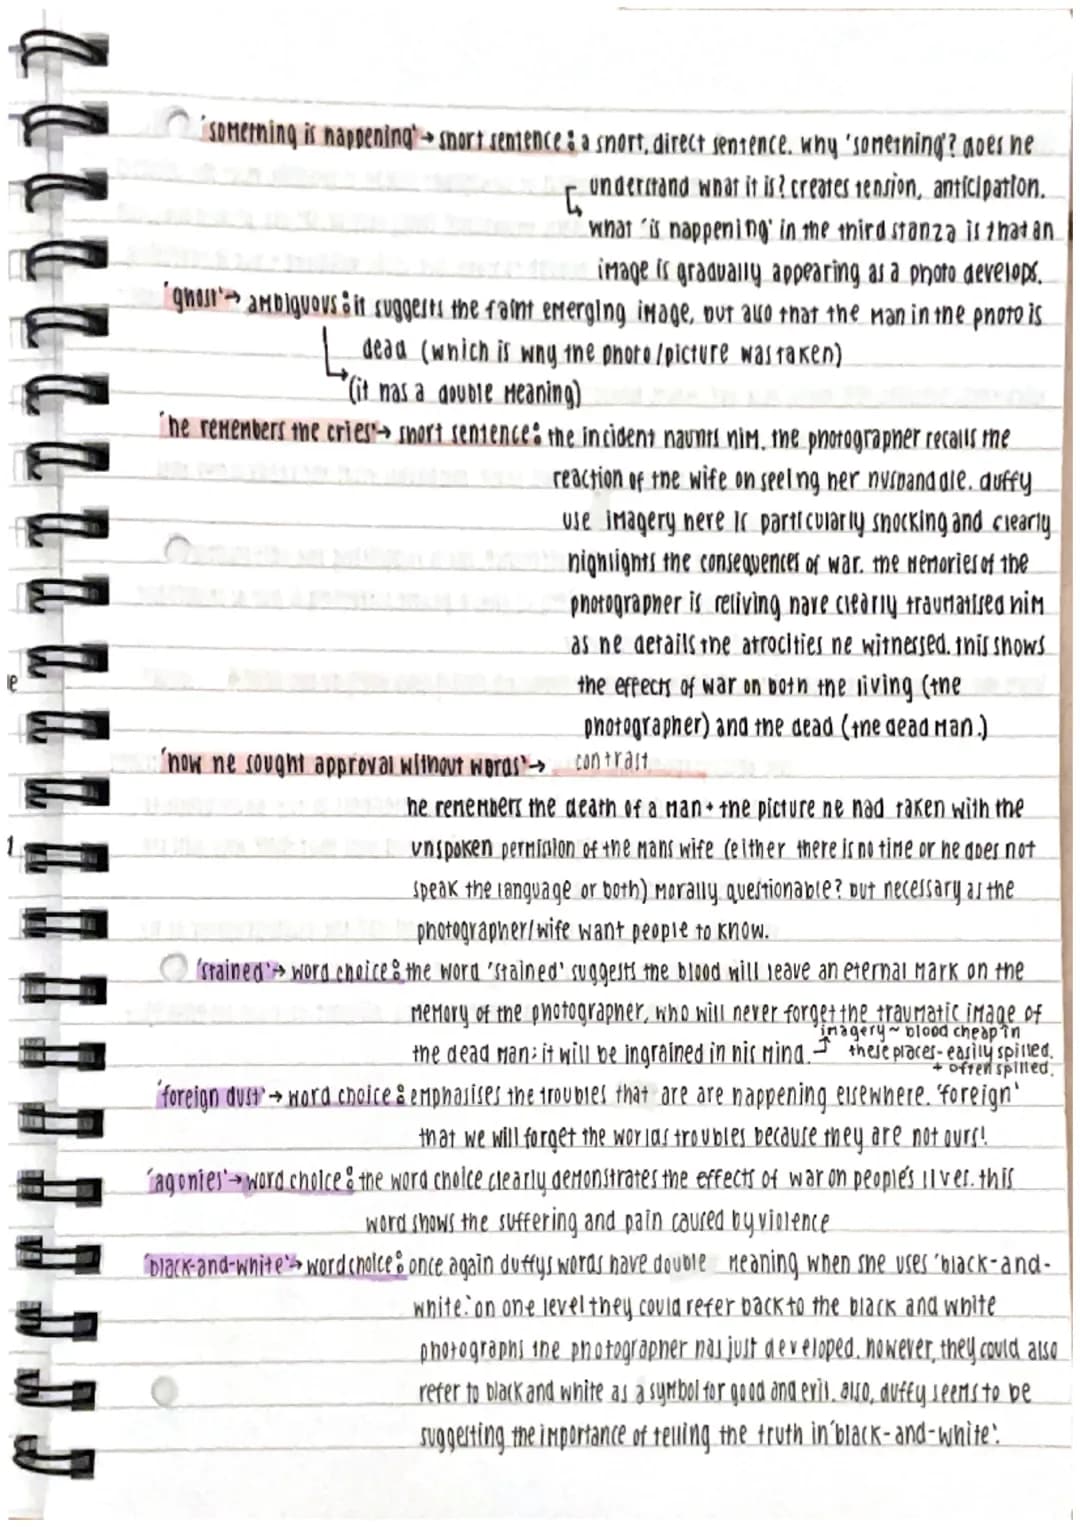 'something is happening' → short sentence: a short, direct sentence. why 'something'? does he
understand what it is? creates tension, anticipation.
what 'is happening' in the third stanza is that an
image is gradually appearing as a photo develops.
'ghost' → ambiguous: it suggests the faint emerging image, but also that the man in the photo is
dead (which is why the photo/picture was taken)
(it has a double meaning)
'he remembers the cries' → short sentence: the incident haunts him. the photographer recalls the
reaction of the wife on seeing her husband die. duffy
use imagery here is particularly shocking and clearly
highlights the consequences of war. the memories of the
photographer is reliving have clearly traumatised him
as he details the atrocities he witnessed. this shows
the effects of war on both the living (the
photographer) and the dead (the dead man.)
'how he sought approval without words' → contrast
he remembers the death of a man + the picture he had taken with the
unspoken permision of the mans wife (either there is no time or he does not
speak the language or both) morally questionable? but necessary as the
photographer/wife want people to know.
'stained' → word choice: the word 'stained' suggests the blood will leave an eternal mark on the
memory of the photographer, who will never forget the traumatic image of
the dead man: it will be ingrained in his mind.
imagery ~ blood cheap in
these places - easily spilled.
+ often spilled.
'foreign dust' → word choice: emphasises the troubles that are are happening elsewhere. 'foreign'
that we will forget the worlds troubles because they are not ours!
'agonies' → word choice: the word choice clearly demonstrates the effects of war on people's lives. this
word shows the suffering and pain caused by violence
'black-and-white' → word choice: once again duffys words have double meaning when she uses 'black-and-
white.' on one level they could refer back to the black and white
photographs the photographer has just developed. however, they could also
refer to black and white as a symbol for good and evil. also, duffy seems to be
suggesting the importance of telling the truth in 'black-and-white'.